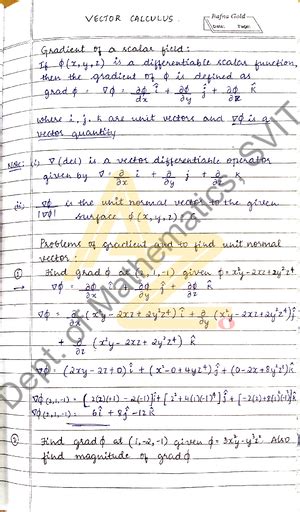 VECTOR CALCULUS.
Rajna Gold
Date: Page:
Gradient of a scalar field:
If ϕ(x,y,z) is a differentiable scalar function,
then the gradient of ϕ is defined as
grad ϕ = ∇ϕ = ∂ϕ/∂x i + ∂ϕ/∂y j + ∂ϕ/∂z k
where i, j, k are unit vectors and ∇ϕ is a
vector quantity
Note: (i) ∇ (del) is a vector differentiable operator
given by ∇ = ∂/∂x i + ∂/∂y j + ∂/∂z k
ii) ∇ϕ/|∇ϕ| is the unit normal vector to the given
surface ϕ(x,y,z) = C
Problems of gradient and to find unit normal
vector:
① Find grad ϕ at (2,1,-1) given ϕ = x²y-2xz+2y²z⁴
→ ∇ϕ = ∂ϕ/∂x î + ∂ϕ/∂y ĵ + ∂ϕ/∂z k̂
∇ϕ = ∂/∂x (x²y-2xz+2y²z⁴) î + ∂/∂y (x²y-2xz+2y²z⁴) ĵ
+ ∂/∂z (x²y-2xz+2y²z⁴) k̂
∇ϕ = (2xy-2z+0) î + (x²-0+4yz⁴) ĵ + (0-2x+8y²z³) k̂
∇ϕ(2,1,-1) = [2(2)(1)-2(-1)] î + [2²+4(1)(-1)⁴] ĵ + [-2(2)+8(1)²(-1)³] k̂
∇ϕ(2,1,-1) = 6î + 8ĵ - 12k̂
② Find grad ϕ at (1,-2,-1) given ϕ = 3x²y-y³z². Also
find magnitude of grad ϕ.
Dept. of Mathematics, SVIT